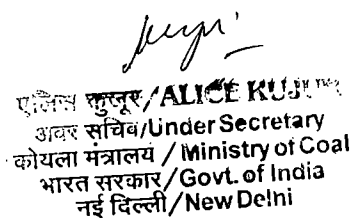 एलिस कुजूर/ALICE KUJUR
अवर सचिव/Under Secretary
कोयला मंत्रालय / Ministry of Coal
भारत सरकार/Govt. of India
नई दिल्ली/New Delhi